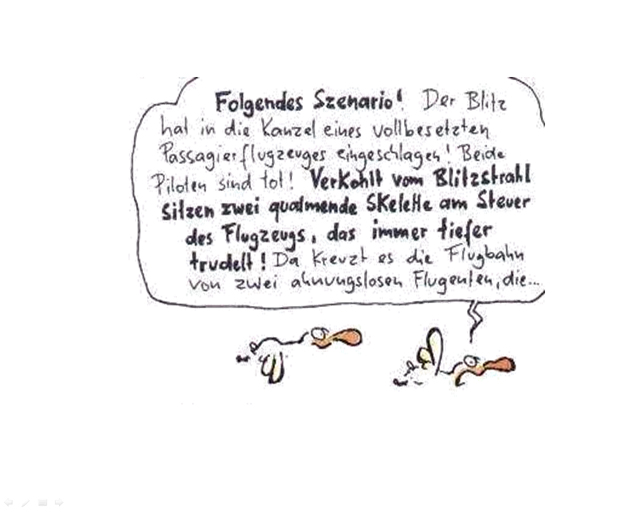 Folgendes Szenario! Der Blitz
hat in die Kanzel eines vollbesetzten
Passagierflugzeuges eingeschlagen! Beide
Piloten sind tot! Verkohlt vom Blitzstrahl
sitzen zwei qualmende Skelette am Steuer
des Flugzeugs, das immer tiefer
trudelt! Da kreuzt es die Flugbahn
von zwei ahnungslosen Flugenten, die...